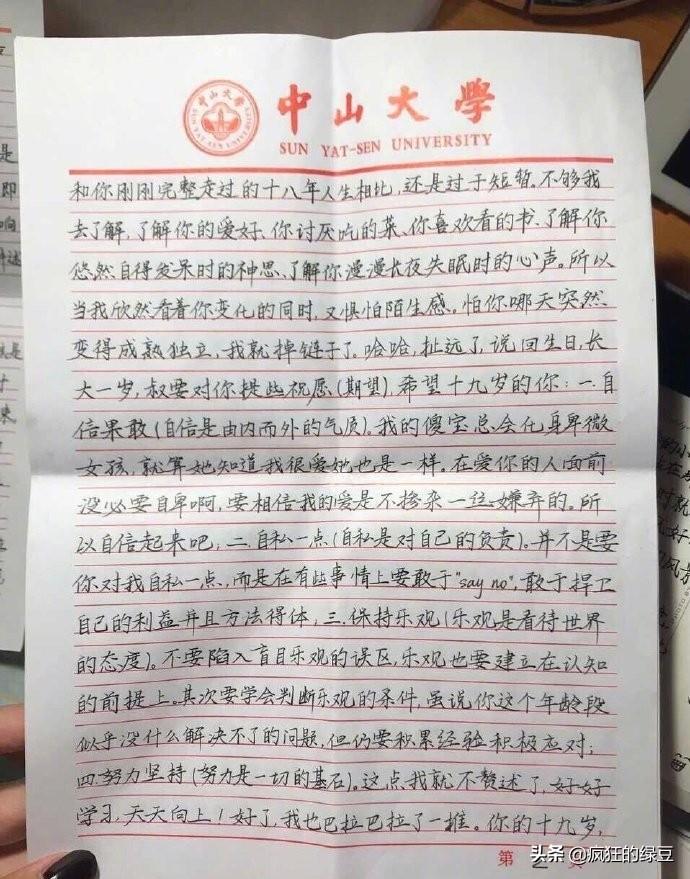 中山大学
SUN YAT-SEN UNIVERSITY
和你刚刚完整走过的十八年人生相比，还是过于短暂。不够我
去了解，了解你的爱好、你讨厌吃的菜、你喜欢看的书、了解你
悠然自得发呆时的神思、了解你漫漫长夜失眠时的心声。所以
当我欣然看着你变化的同时，又惧怕陌生感。怕你哪天突然
变得成熟独立，我就掉链子了。哈哈，扯远了，说回生日，长
大一岁，叔要对你提些祝愿（期望），希望十九岁的你：一.自
信果敢（自信是由内而外的气质）。我的傻宝总会化身卑微
女孩，就算她知道我很爱她也是一样。在爱你的人面前
没必要自卑啊，要相信我的爱是不掺杂一丝嫌弃的。所
以自信起来吧；二.自私一点（自私是对自己的负责）。并不是要
你对我自私一点，而是在有些事情上要敢于"say no"，敢于捍卫
自己的利益并且方法得体，三.保持乐观（乐观是看待世界
的态度）。不要陷入盲目乐观的误区，乐观也要建立在认知
的前提上。其次要学会判断乐观的条件，虽说你这个年龄段
似乎没什么解决不了的问题，但仍要积累经验积极应对；
四.努力坚持（努力是一切的基石）。这点我就不赘述了，好好
学习，天天向上！好了，我也巴拉巴拉了一堆。你的十九岁，
第 2 页
头条 @疯狂的绿豆